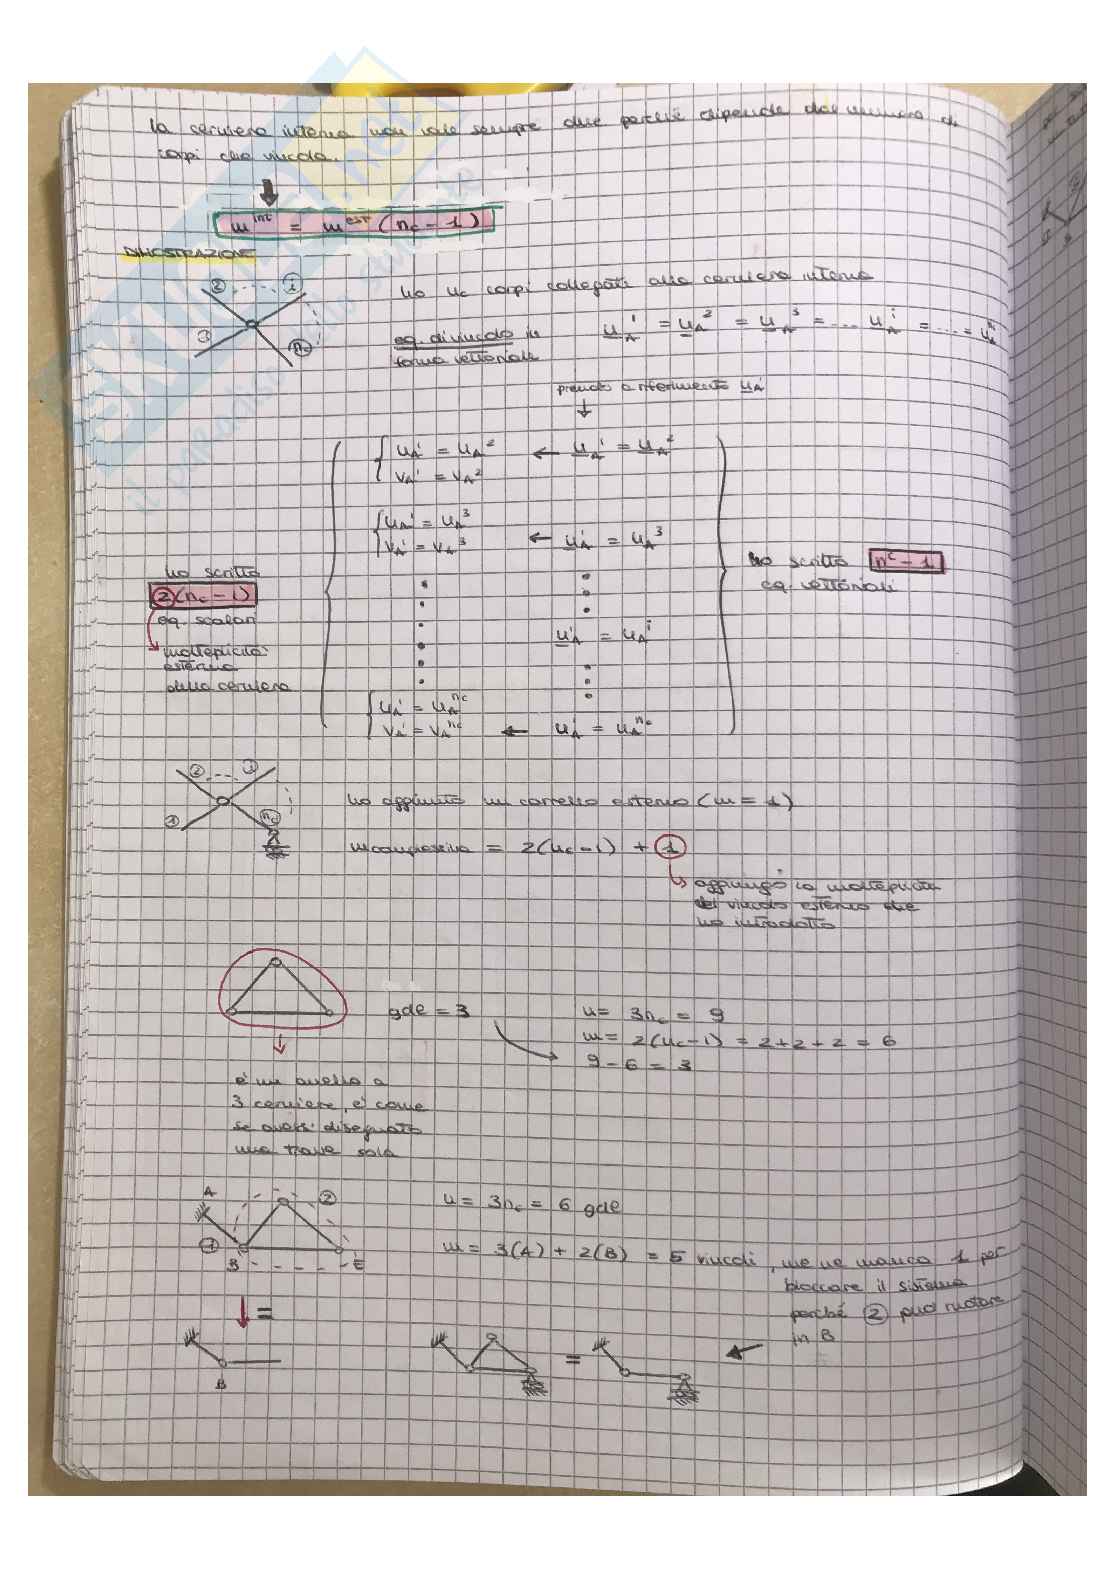 la cerniera interna non vale sempre due perché dipende dal numero di
corpi che vincola.
m^int = m^est (nc - 1)
DIMOSTRAZIONE
2 i
3 nc
ho nc corpi collegati alla cerniera interna
eq. di vincolo in
forma vettoriale
u_A^1 = u_A^2 = u_A^3 = ... u_A^i = .... = u_A^nc
prendo a riferimento u_A^1
↓
{ u_A^1 = u_A^2 ← u_A^1 = u_A^2
v_A^1 = v_A^2
{ u_A^1 = u_A^3
v_A^1 = v_A^3 ← u_A^1 = u_A^3
u_A^1 = u_A^i
{ u_A^1 = u_A^nc
v_A^1 = v_A^nc ← u_A^1 = u_A^nc
ho scritto
2(nc - 1)
eq. scalari
molteplicità
esterna
della cerniera
ho scritto n^c - 1
eq. vettoriali
2 i
1 nc
ho aggiunto un carrello esterno (m = 1)
m complessiva = 2(nc - 1) + 1
aggiungo la molteplicità
del vincolo esterno che
ho introdotto
gdl = 3
u = 3nc = 9
m = 2(nc - 1) = 2 + 2 + 2 = 6
9 - 6 = 3
è un anello a
3 cerniere, è come
se avessi disegnato
una trave sola
A 2
1
B C
u = 3nc = 6 gdl
m = 3(A) + 2(B) = 5 vincoli, me ne manca 1 per
bloccare il sistema
perché 2 può ruotare
in B
=
B
=
SKUOLA.net
il paradiso dello studente